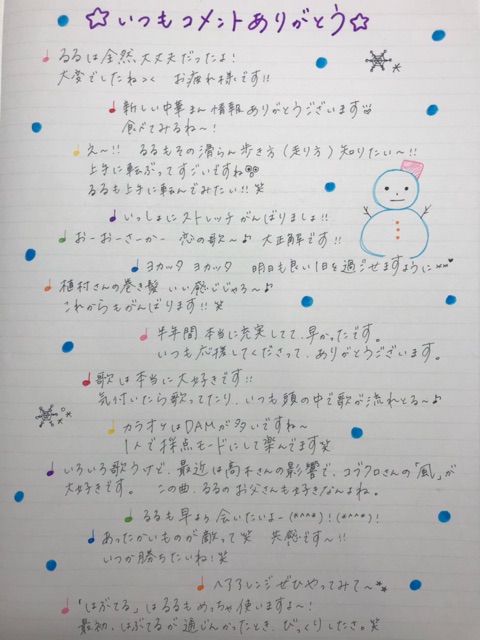 ☆いつもコメントありがとう☆
♪るるは全然、大丈夫だったよ!
大変でしたね>< お疲れ様です!!
♪新しい中華まん情報ありがとうございます
食べてみるね〜!
♪え〜!! るるもその滑らん歩き方(走り方)知りたい〜!!
上手に転ぶってすごいですね
るるも上手に転んでみたい!!笑
♪いっしょにストレッチがんばりましょ!!
♪おーおーさーかー 恋の歌〜♪ 大正解です!!
♪ヨカッタ ヨカッタ 明日も良い1日を過ごせますように
♪植村さんの巻き髪 いい感じじゃろ〜♪
これからもがんばります!!笑
♪半年間 本当に充実してて、早かったです。
いつも応援してくださって、ありがとうございます。
♪歌は本当に大好きです!!
気付いたら歌ってたり、いつも頭の中で歌が流れとる〜♪
♪カラオケはDAMが多いですね〜
1人で採点モードにして楽んでます笑
♪いろいろ歌うけど、最近は高木さんの影響で、コブクロさんの「風」が
大好きです。 この曲、るるのお父さんも好きなんよね。
♪るるも早よう会いたいよー(*^^*)!(*^^*)!
♪あったかいものが敵って笑 共感です〜!!
いつか勝ちたいね!笑
♪ヘアアレンジぜひやってみて〜
♪「はぶてる」はるるもめっちゃ使いますよ〜!
最初、はぶてるが通じんかったとき、びっくりしたさ。笑